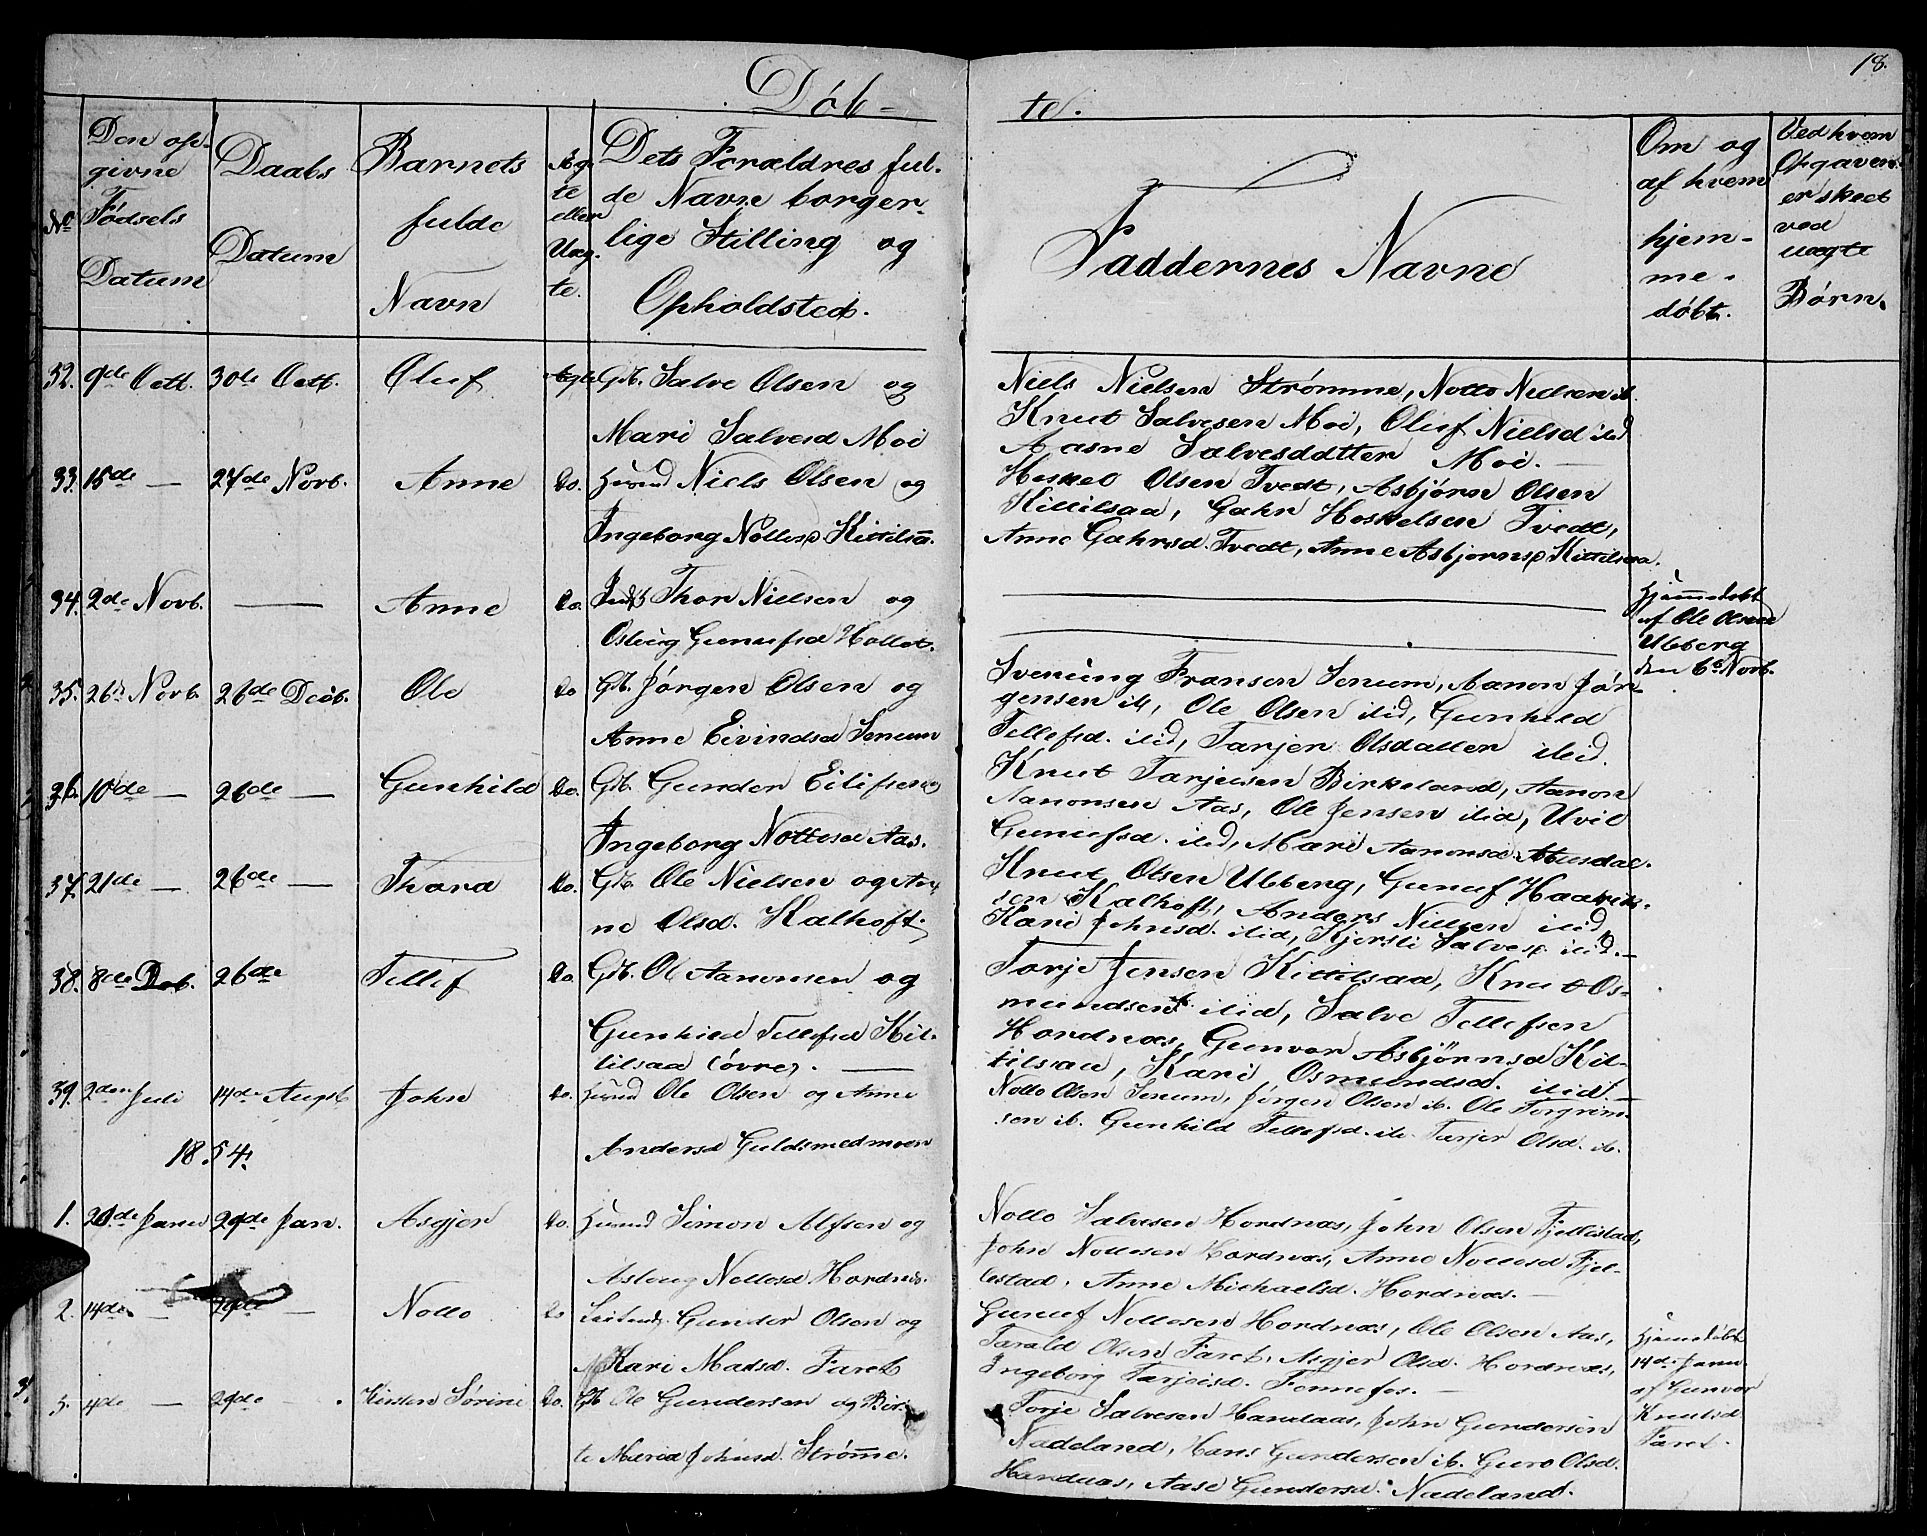 Døb-
te.
18.
No
Den op-
givne
Fødsels
Datum
Daabs
Datum
Barnets
fulde
Navn
Æg-
te
eller
Uæg-
te.
Dets Forældres ful-
de Navn borger-
lige Stilling og
Opholdsted.
Faddernes Navne
Om og
af hvem
hjem-
me-
døbt.
Ved hvem
Opgaven
er skeet
ved
uægte
Børn.
32. 9de Octb. 30de Octb. Oluf Ægte Gb. Salve Olsen og
Mari Salvesd Moi
Niels Nielsen Strømme, Notto Nielsen ib.
Knut Salvesen Moi, Oluf Nielsd ibid
Aasne Salvesdatter Moi.
33. 15de — 27de Novb. Anne Do. Huusd Niels Olsen og
Ingeborg Nottesd Kittilsaa.
Heskel Olsen Tvedt, Asbjørn Olsen
Kittilsaa, Gahr Heskelsen Tvedt,
Anne Gahrsd. Tvedt, Anne Asbjørnsd Kittilsaa.
34. 2de Novb. — Anne Do. Thor Nielsen og
Osbieg Gunufsd Hollet.
Hjemmedøbt
af Ole Olsen
Ubberg
den 6te Novb.
35. 26de Novb. 26de Decb. Ole Do Gb. Jørgen Olsen og
Anne Eivindsd Senum
Svenung Fransen Senum, Aanon Jør-
gensen ib, Ole Olsen ibid, Gunhild
Tellefsd. ibid, Tarjer Olsdatter ibid.
36. 10de — 26de — Gunhild Do. Gb. Gunder Eilifsen og
Ingeborg Nottesd Aas.
Knut Tarjeisen Birkeland, Aanon
Aanonsen Aas, Ole Jensen ibid, Uvil
Gunufsd. ibid, Mari Aanonsd Abusdal.
37. 21de — 26de — Thora Do. Gb. Ole Nielsen og An-
ne Olsd. Kalhoft.
Knut Olsen Ubberg, Gunuf Haavor-
sen Kalhoft, Anders Nielsen ibid
Kari Johnsd. ibid, Kjersti Salvesd ibid.
38. 8de Deb. 26de Tellef Do. Gb. Ole Aanonsen og
Gunhild Tellefsd Kit-
tilsaa (øvre).
Torje Jensen Kittilsaa, Knut Os-
mundsen ibid, Salve Tellefsen
Hordnæs, Gunvor Asbjørnsd Kit-
tilsaa, Kari Osmundsd. ibid.
39. 2den Juli 14de Augst John Do. Huusd Ole Olsen og Anne
Andersd Guldsmedmoen
Notto Olsen Senum, Jørgen Olsen ib. Ole Torgrim-
sen ib. Gunhild Tellefsd. ib. Tarjer Olsd. ib.
1854.
1. 20de Janu 29de Jan. Asgjer Do. Huusd Simon Alfsen og
Aslaug Nottesd Hordnes.
Notto Salvesen Hordnæs, John Olsen Fjellestad,
John Nottesen Hordnæs, Anne Nottesd Fjel-
lestad, Anne Michaelsd. Hordnæs.
2. 14de — 29de — Notto Do Gunder Olsen og
Kari Madsd. Faret
Gunuf Nottesen Hordnæs, Ole Olsen Aas,
Tarald Olsen Faret, Asgjer Olsd. Hordnæs,
Ingeborg Tarjeisd. Fennefos.
Hjemmedøbt
14de Janu.
af Gunvor
Knutsd
Faret.
3. 4de — 29de — Kirsten Sørine Do. Gb Ole Gundersen og Bir-
te Maria Johnsd. Strømme.
Torje Salvesen Handaas, John Gundersen
Nadeland, Hans Gundersen ib. Guro Olsd.
Handaas, Aase Gundersd. Nadeland.